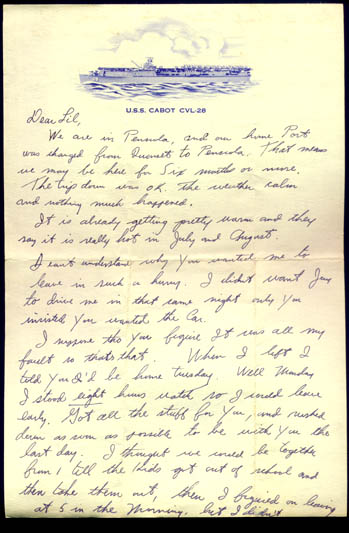 U.S.S. CABOT CVL-28
Dear Lil,
We are in Penscola, and our home Port
was changed from Quonset to Penscola. That means
we may be here for Six months or more.
The trip down was OK. the weather calm
and nothing much happened.
It is already getting pretty warm and they
say it is really hot in July and August.
I can't understand why You wanted me to
leave in such a hurry. I didn't want Jim
to drive me in that same night only You
insisted You wanted the Car.
I suppose tho You figuire It was all my
fault so thats that. When I left I
told You I'd be home tuesday. Well Monday
I stood eight hours watch so I could leave
early. Got all the stuff for You, and rushed
down as soon as possible to be with You the
last day. I thought we could be together
from 1 till the Kids got out of school and
then take them out, then I figuied on leaving
at 5 in the Morning, but I didn't